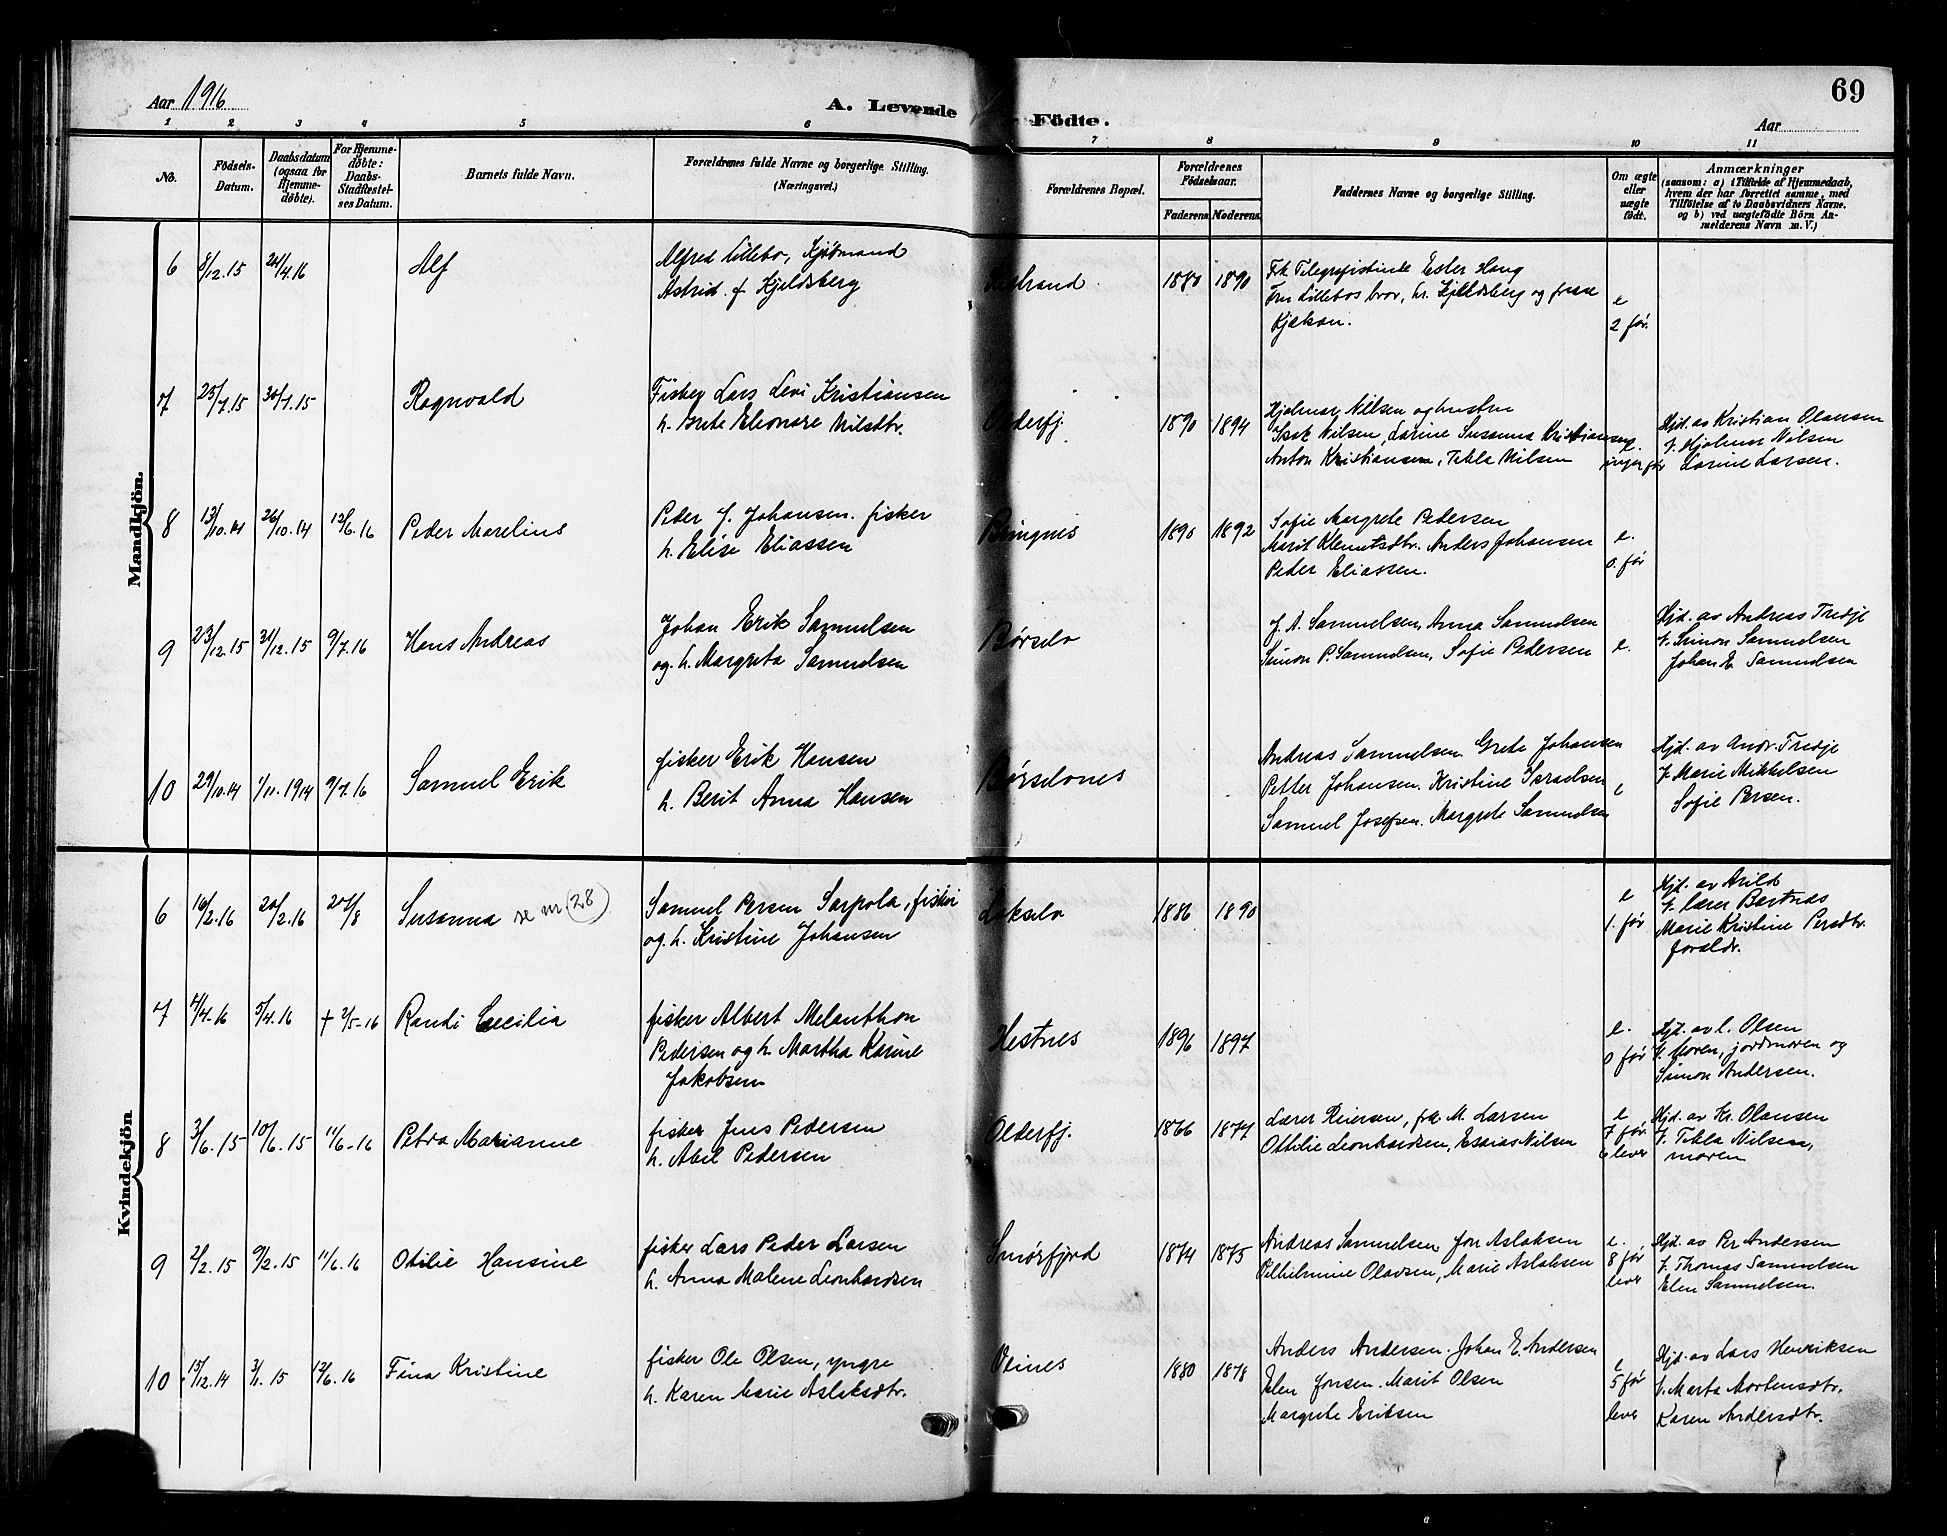 Aar 1916
A. Levende Födte.
69
Aar
1 2 3 4 5 6 7 8 9 10 11
No.
Födsels-Datum.
Daabsdatum (ogsaa for Hjemme-døbte).
For Hjemme-døbte: Daabs-Stadfæstelses Datum.
Barnets fulde Navn.
Forældrenes fulde Navne og borgerlige Stilling.
(Næringsvei.)
Forældrenes Bopæl.
Forældrenes Födselsaar.
Faderens Moderens
Faddernes Navne og borgerlige Stilling.
Om ægte eller uægte födt.
Anmærkninger
(saasom: a) i Tilfælde af Hjemmedaab,
hvem der har forrettet samme, med
Tilföielse af to Daabsvidners Navne.
og b) ved uægtefödte Börn An-
melderens Navn m. V.)
Mandkjön.
6 8/12.15 24/4.16 Alf
Alfred Lillebo, Kjøbmand
Astrid f Kjeldsberg
1880 1890
Frk Telegrafistinde Ester Haug
Lillebos bror, hr. Kjeldsberg og frue
e
2 før.
7 25/7.15 30/7.15 Ragnvald
Fisker Lars Levi Kristiansen
h. Brete Eleonore Nilsdtr.
Olderfj. 1890 1894
Hjalmar Nilsen og hustru
Isak Nilsen, Larine Susanna Kristiansen
Anton Kristiansen, Tekla Nilsen
e.
ingen før
Hjd. av Kristian Olausen
V. Hjalmar Nilsen
Larine Larsen.
8 13/10.14 26/10.14 12/6.16 Peder Marelius
Peder J. Johansen. fisker
h. Elise Eliassen
Bringnes 1890 1892
Sofie Margrete Pedersen
Marit Klemetsdtr. Anders Johansen
Peder Eliassen.
e.
0. før
9 23/12.15 31/12.15 9/7.16 Hans Andreas
Johan Erik Samuelsen
og h. Margreta Samuelsen
Børselv
J. A. Samuelsen, Anna Samuelsen
Simon P. Samuelsen, Sofie Pedersen
e.
Hjd. av Andreas Tredje
V. Simon Samuelsen
Johan E. Samuelsen
10 29/10.14 1/11.1914 9/7.16 Samuel Erik
fisker Erik Hansen
h. Berit Anna Hansen
Børselvnes
Andreas Samuelsen Grete Johansen
Petter Johansen. Kristine Israelsen
Samuel Josefsen. Margrete Samuelsen
e
Hjd. av Andr. Tredje
V. Marie Mikkelsen
Sofie Persen.
Kvindekjön
6 16/2.16 20/2.16 20/8 Susanna se nr (28)
Samuel Persen Sarpola, fisker
og h. Kristine Johansen
Lakselv 1886 1890
e
1. før
Hjd. av Arild
V. lærer Bertnæs
Marie Kristine Persdtr.
foreldr.
7 4/4-16 5/4.16 † 2/5-16 Randi Cecilia
fisker Albert Melanthon
Pedersen og h. Martha Karine
Jakobsen
Hestnes 1896 1897
e.
0 før
Hjd. av l. Olsen
V. Moren, jordmoren og
Simon Andersen.
8 3/6.15 10/6.15 11/6-16 Petra Marianne
fisker Jens Pedersen
h. Abel Pedersen
Olderfj. 1866 1877
Lærer Reiersen, frk. M. Larsen
Ottilie Leonhardsen, Esaias Nilsen
e
7 før
6 lever
Hjd. av Kr. Olausen
V. Tekla Nilsen,
moren
9 2/2.15 9/2.15 11/6.16 Otilie Hansine
fisker Lars Peder Larsen
h. Anna Malene Leonhardsen
Smørfjord 1874 1875
Andreas Samuelsen Jon Aslaksen
Vilhelmine Olavsen, Marie Aslaksen
e.
8 før
lever
Hjd. av Per Andersen
V. Thomas Samuelsen
Elen Samuelsen.
10 15/12.14 3/1.15 12/6.16 Fina Kristine
fisker Ole Olsen, yngre
h. Karen Marie Aslaksdtr.
Veines 1880 1878
Anders Andersen. Johan E. Andersen
Elen Jonsen. Marit Olsen
Margrete Eriksen
e
5 før
lever
Hjd. av Lars Henriksen
V. Marta Mortensdtr.
Karen Andersdtr.